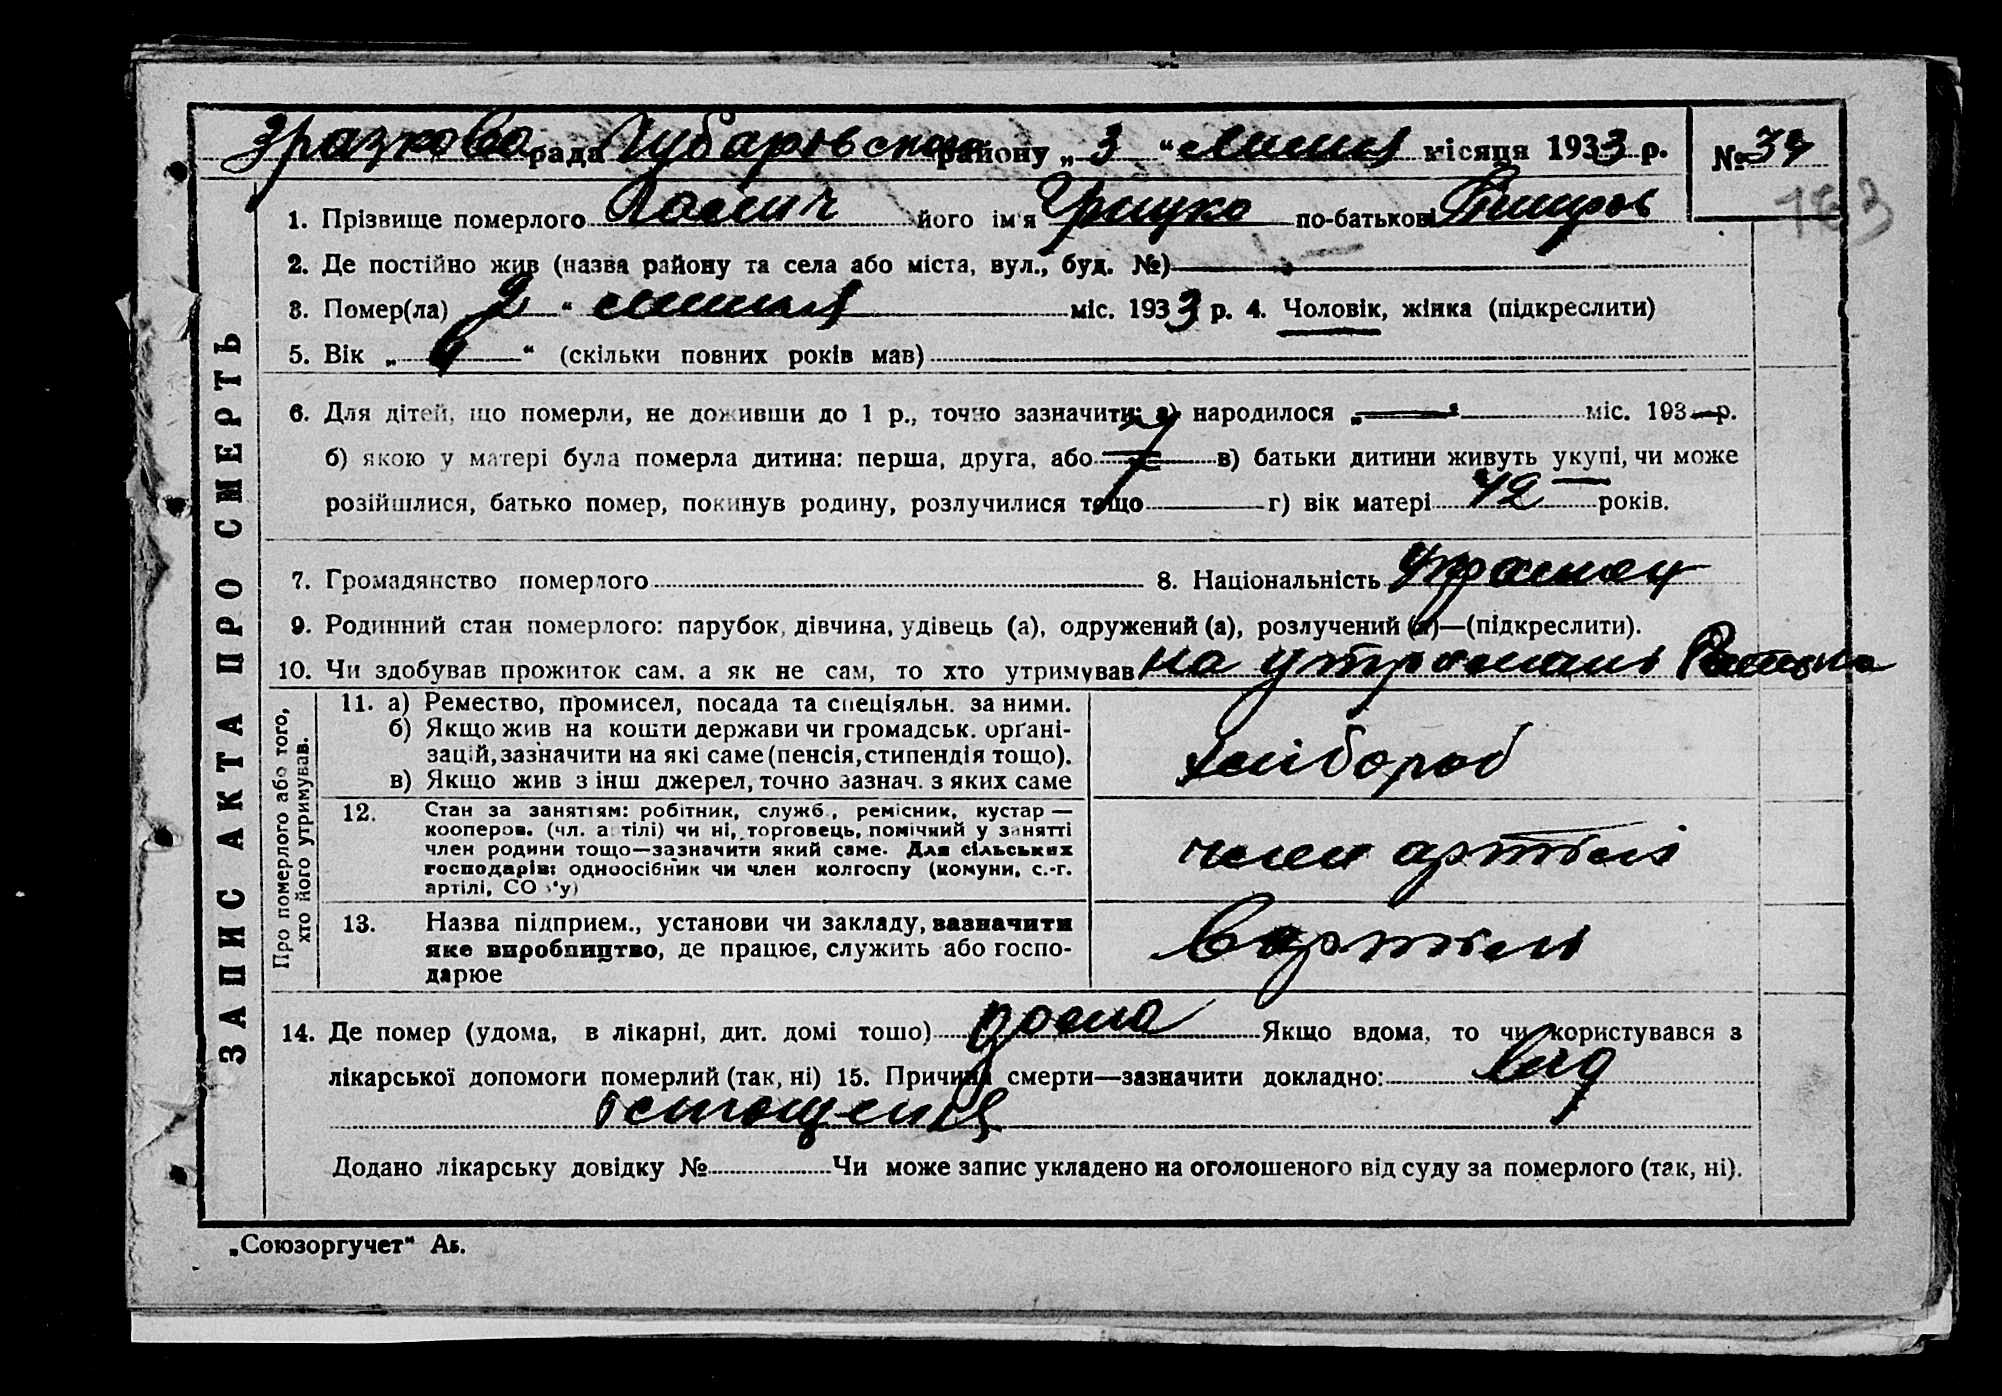 Зразкова рада Чубаровского району „ 3 “ Липня місяця 1933 р. № 37
183
1. Прізвище померлого його ім'я Грицко по-батькові
2. Де постійно жив (назва району та села або міста, вул., буд. №)
3. Помер(ла) „ 2 “ липня міс. 1933 р. 4. Чоловік, жінка (підкреслити)
5. Вік „ “ (скільки повних років мав)
6. Для дітей, що померли, не доживши до 1 р., точно зазначити: а) народилося „ “ міс. 193 р.
б) якою у матері була померла дитина: перша, друга, або 7 в) батьки дитини живуть укупі, чи може
розійшлися, батько помер, покинув родину, розлучилися тощо г) вік матері 42 років.
7. Громадянство померлого 8. Національність Украінец
9. Родинний стан померлого: парубок, дівчина, удівець (а), одружений (а), розлучений (а)—(підкреслити).
10. Чи здобував прожиток сам, а як не сам, то хто утримував на утримані
ЗАПИС АКТА ПРО СМЕРТЬ
Про померлого або того, хто його утримував.
11. а) Ремество, промисел, посада та спеціяльн. за ними.
б) Якщо жив на кошти держави чи громадськ. орґані-
зацій, зазначити на які саме (пенсія, стипендія тощо).
в) Якщо жив з інш джерел, точно зазнач. з яких саме
хлібороб
12. Стан за заняттям: робітник, служб., ремісник, кустар —
кооперов. (чл. артілі) чи ні, торговець, помічний у занятті
член родини тощо—зазначити який саме. Для сільських
господарів: одноосібник чи член колгоспу (комуни, с.-г.
артілі, СОЗ'у)
член артілі
13. Назва підприєм., установи чи закладу, зазначити
яке виробництво, де працює, служить або госпо-
дарює
Вартілі
14. Де помер (удома, в лікарні, дит. домі тощо) дома Якщо вдома, то чи користувався з
лікарської допомоги померлий (так, ні) 15. Причина смерти—зазначити докладно: від
істощенія
Додано лікарську довідку № Чи може запис укладено на оголошеного від суду за померлого (так, ні).
„Союзоргучет“ Аб.